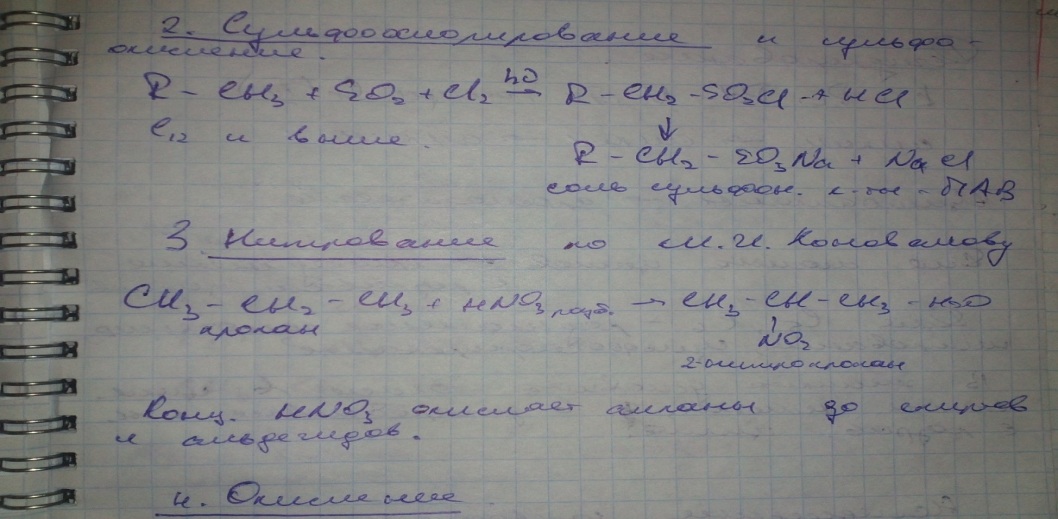 2. Сульфохлорирование и сульфо-
окисление.
R – CH₃ + SO₂ + Cl₂ hυ→ R – CH₂ – SO₂Cl + HCl
C₁₂ и выше. ↓
R – CH₂ – SO₃Na + NaCl
соль сульфон. к-ты – ПАВ
3 Нитрование по М.И. Коновалову
CH₃ – CH₂ – CH₃ + HNO₃ разб. → CH₃ – CH – CH₃ – H₂O
пропан NO₂
2-нитропропан
Конц. HNO₃ окисляет алканы до спиртов
и альдегидов.
4. Окисление